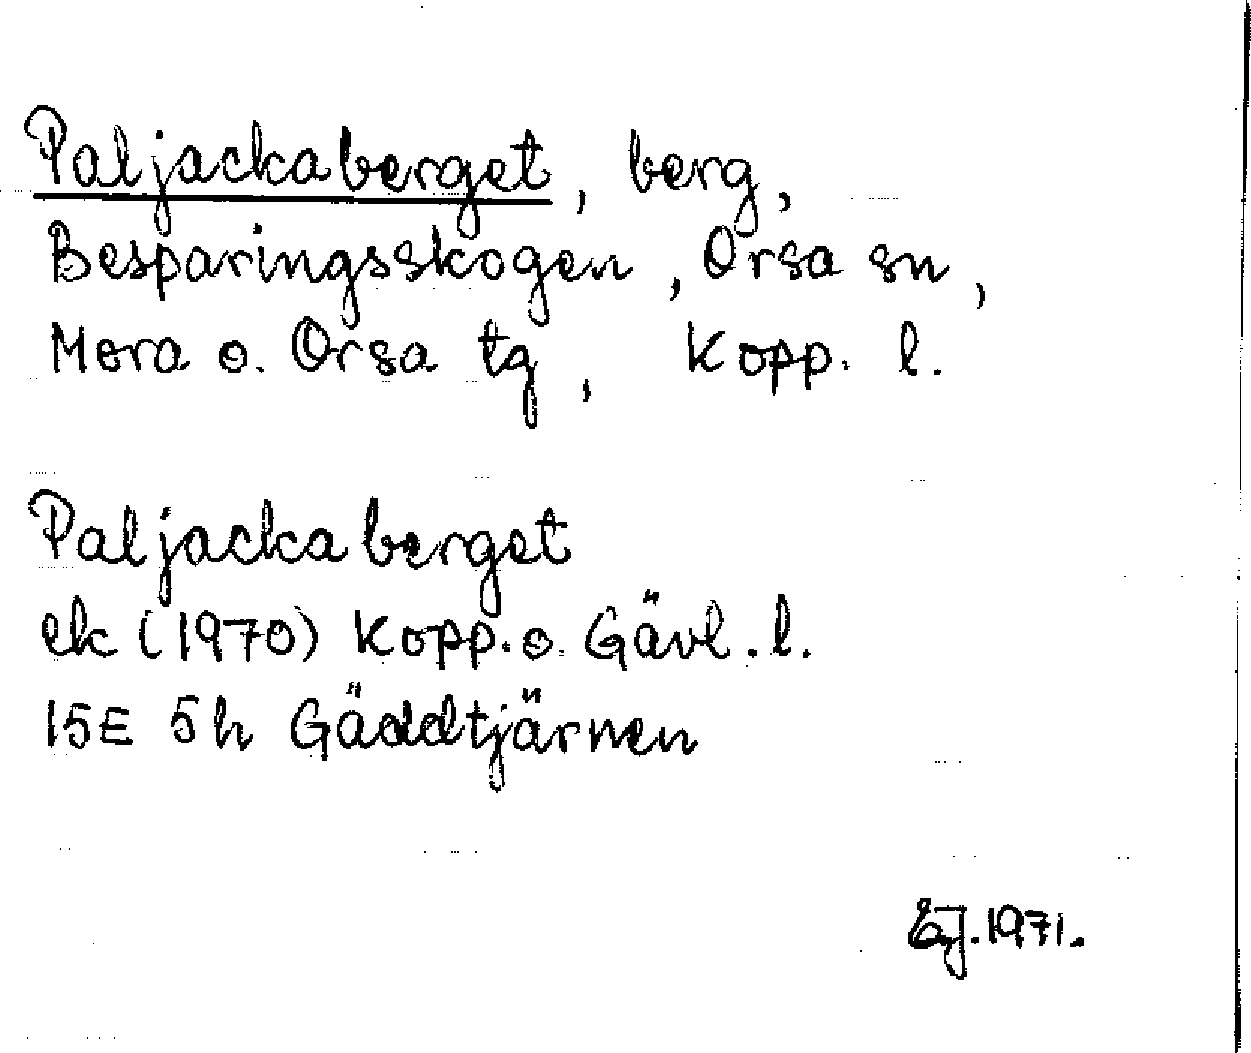 Paljackaberget, berg,
Besparingsskogen, Orsa sn,
Mora o. Orsa tg, Kopp. l.
Paljackaberget
ek (1970) Kopp. o. Gävl. l.
15E 5h Gäddtjärnen
EJ. 1971.